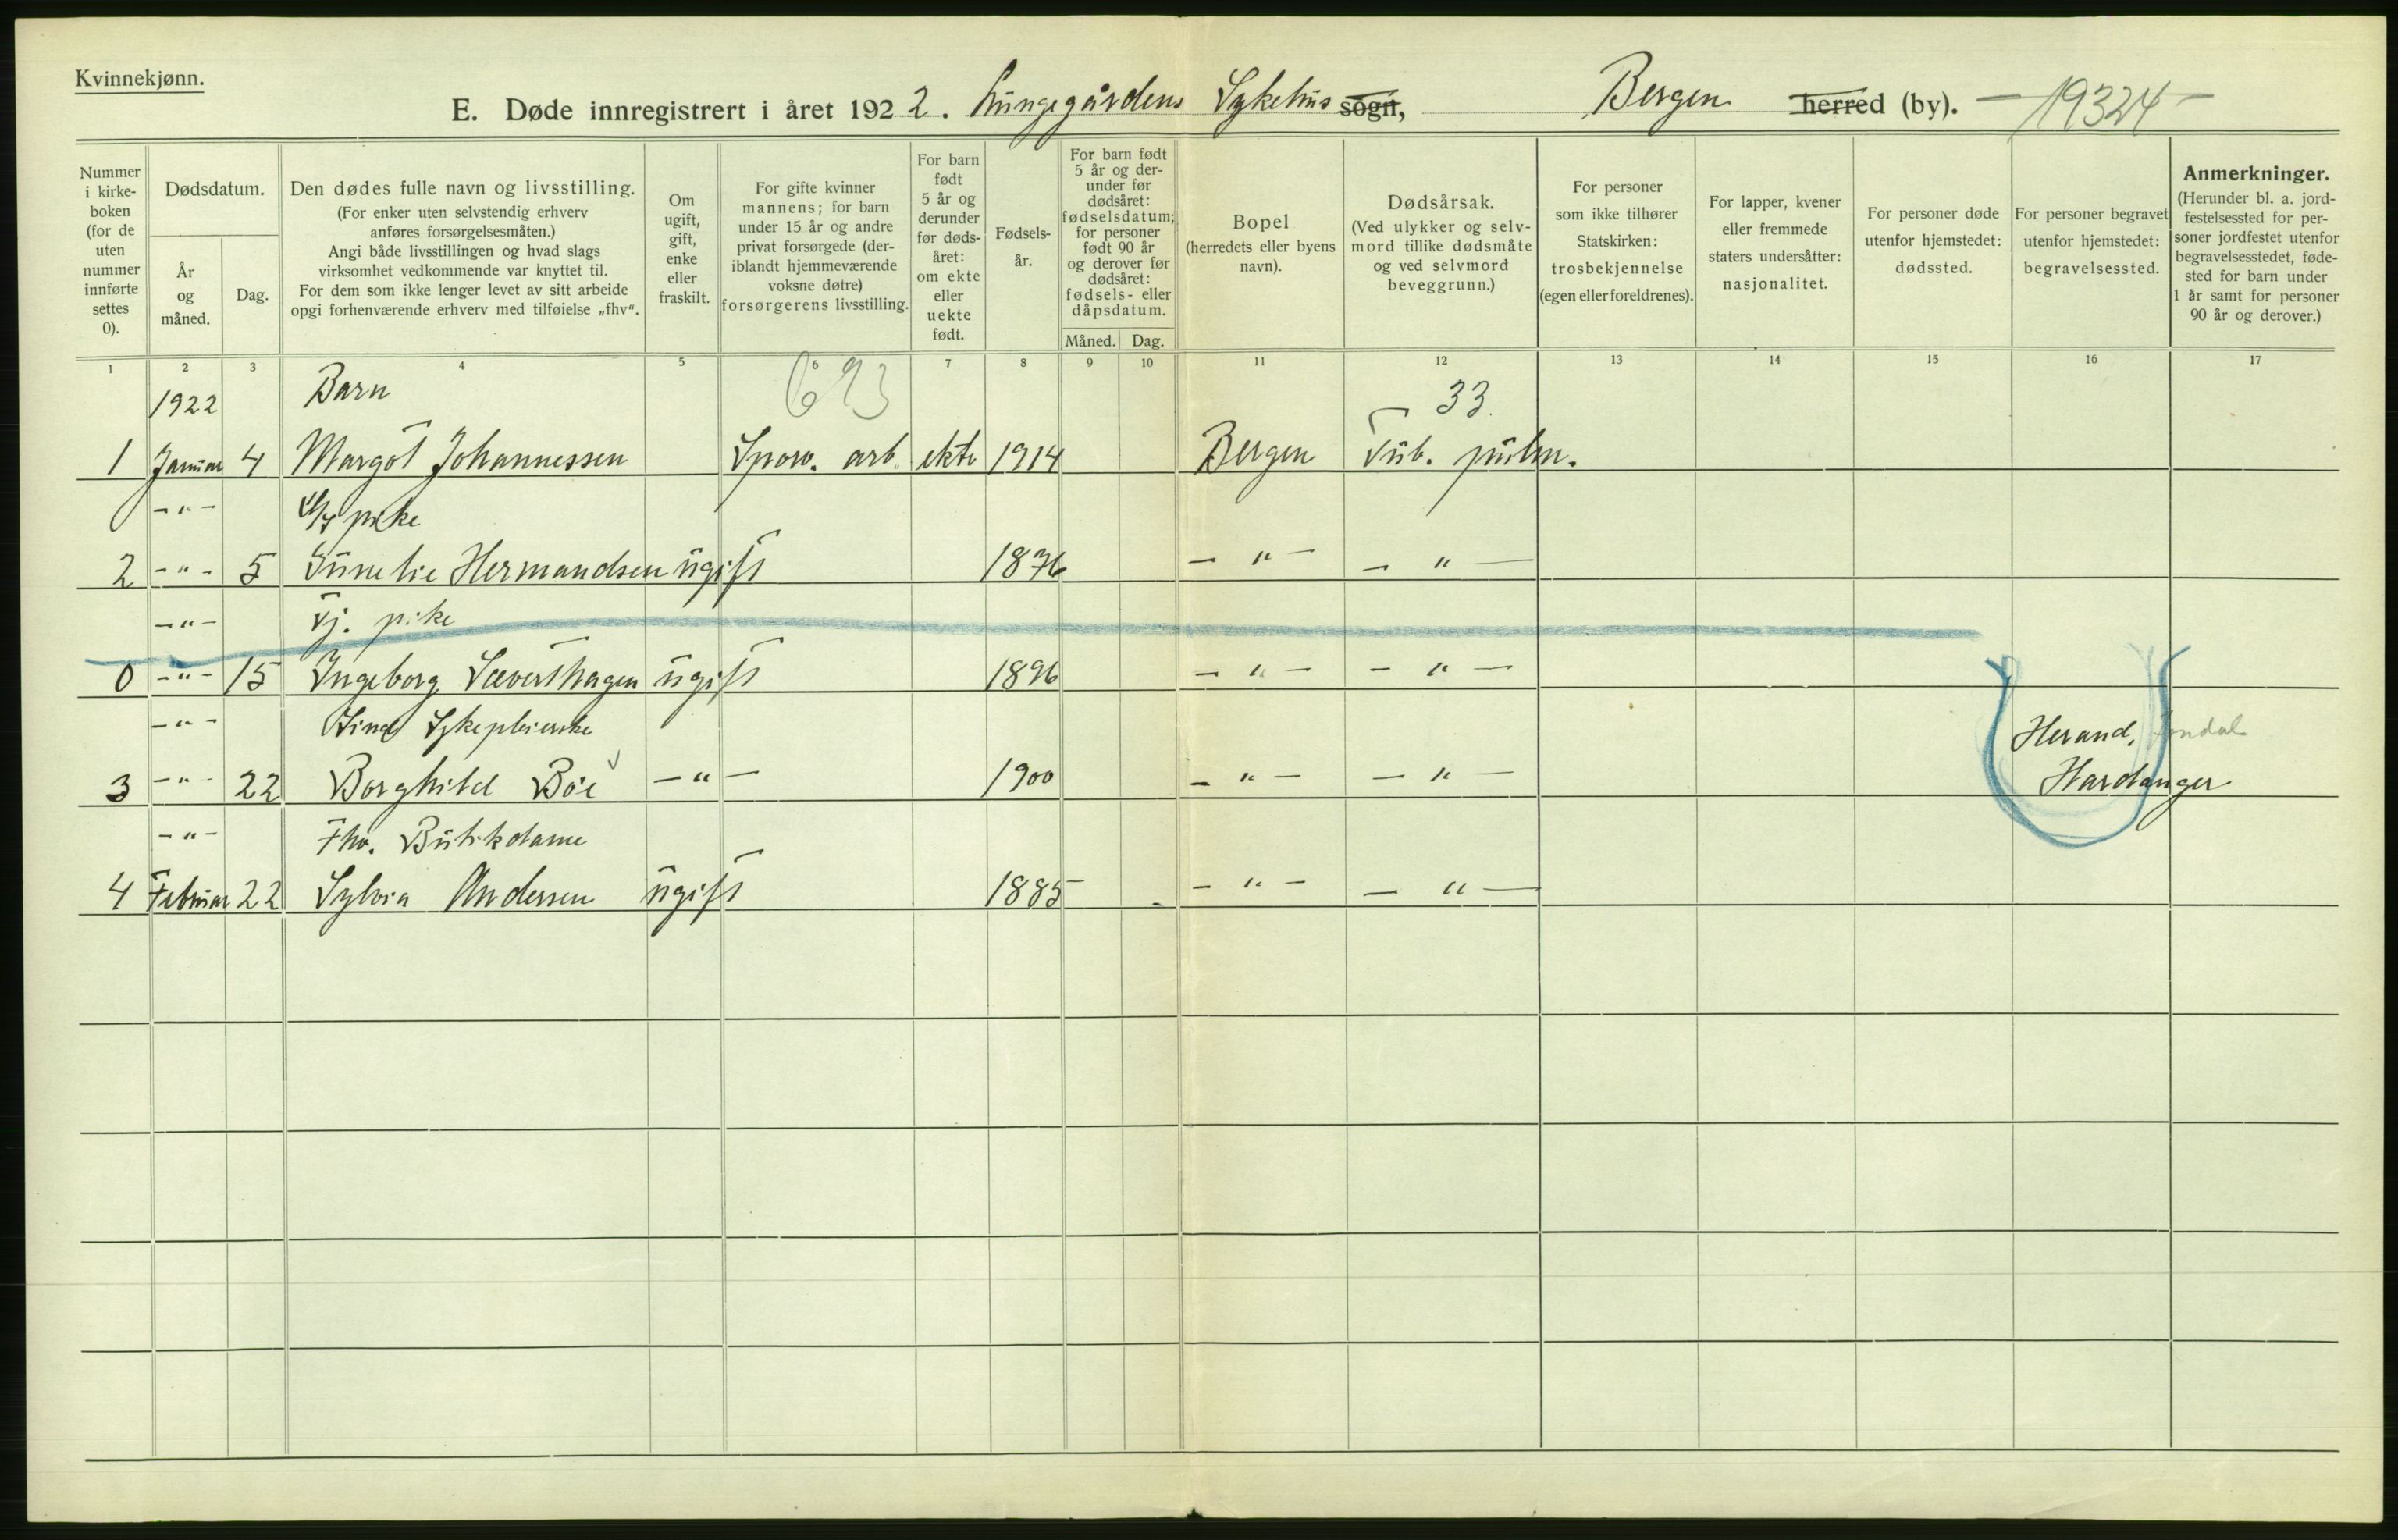 Kvinnekjønn.
E. Døde innregistrert i året 1922. Lungegårdens Sykehus sogn, Bergen herred (by). — 19324 —
Nummer i kirkeboken (for de uten nummer innførte settes 0).
Dødsdatum.
År og måned.
Dag.
Den dødes fulle navn og livsstilling.
(For enker uten selvstendig erhverv anføres forsørgelsesmåten.)
Angi både livsstillingen og hvad slags virksomhet vedkommende var knyttet til.
For dem som ikke lenger levet av sitt arbeide opgi forhenværende erhverv med tilføielse „fhv“.
Om ugift, gift, enke eller fraskilt.
For gifte kvinner mannens; for barn under 15 år og andre privat forsørgede (deriblandt hjemmeværende voksne døtre) forsørgerens livsstilling.
For barn født 5 år og derunder før dødsåret: om ekte eller uekte født.
Fødselsår.
For barn født 5 år og derunder før dødsåret: fødselsdatum; for personer født 90 år og derover før dødsåret: fødsels- eller dåpsdatum.
Måned. Dag.
Bopel (herredets eller byens navn).
Dødsårsak.
(Ved ulykker og selvmord tillike dødsmåte og ved selvmord beveggrunn.)
For personer som ikke tilhører Statskirken: trosbekjennelse (egen eller foreldrenes).
For lapper, kvener eller fremmede staters undersåtter: nasjonalitet.
For personer døde utenfor hjemstedet: dødssted.
For personer begravet utenfor hjemstedet: begravelsessted.
Anmerkninger.
(Herunder bl. a. jordfestelsessted for personer jordfestet utenfor begravelsesstedet, fødested for barn under 1 år samt for personer 90 år og derover.)
1 2 3 4 5 6 7 8 9 10 11 12 13 14 15 16 17
1922 Barn 693 33.
1 Januar 4 Margot Johannessen Sporv. arb. ekte 1914 Bergen Tub. pulm.
— " — pike
2 — " — 5 Hermandsen ugift 1876 — " — — " —
— " — Tj. pike
0 — " — 15 Ingeborg Sæverthagen ugift 1896 — " — — " —
— " — Sykepleierske Herand, Jondal
3 — " — 22 Borghild Bøe — " — 1900 — " — — " — Hardanger
— " — Fhv. Butikdame
4 Februar 22 Sylvia Andersen ugift 1885 — " — — " —